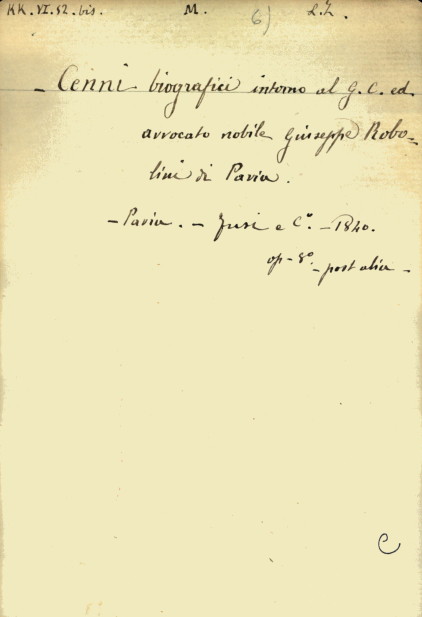 KK.VI.52.bis. M. 6) L.Z.
– Cenni biografici intorno al G. C. ed
avvocato nobile Giuseppe Robo-
lini di Pavia.
– Pavia. – Fusi e C.º – 1840.
op – 8º – post alia –
C